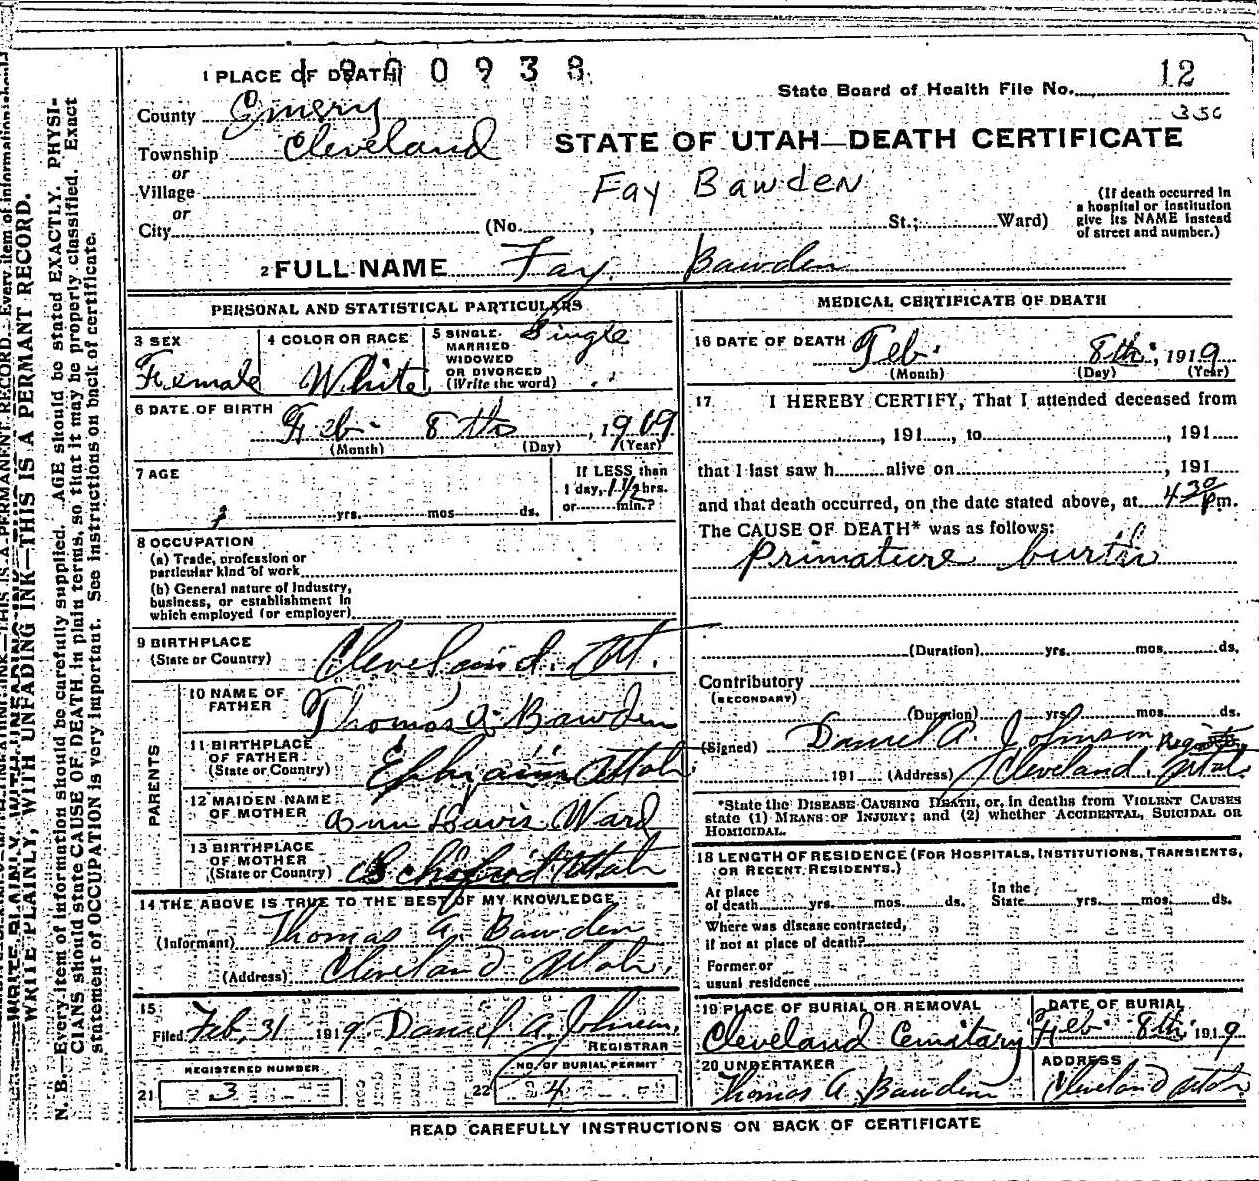 1 PLACE OF DEATH
1900938
State Board of Health File No. 12
350
County Emery
Township Cleveland
STATE OF UTAH—DEATH CERTIFICATE
or
Village
Fay Bawden
(If death occurred in a hospital or institution give its NAME instead of street and number.)
or
City (No. , St.; Ward)
2 FULL NAME Fay Bawden
PERSONAL AND STATISTICAL PARTICULARS
3 SEX Female
4 COLOR OR RACE White
5 SINGLE. MARRIED WIDOWED OR DIVORCED (Write the word) Single
6 DATE OF BIRTH Feb 8th, 1909
(Month) (Day) (Year)
7 AGE
yrs. mos. ds.
If LESS than 1 day, 1 1/2 hrs. or min.?
8 OCCUPATION
(a) Trade, profession or particular kind of work
(b) General nature of Industry, business, or establishment in which employed (or employer)
9 BIRTHPLACE (State or Country) Cleveland. Ut.
PARENTS
10 NAME OF FATHER Thomas A. Bawden
11 BIRTHPLACE OF FATHER (State or Country) Ephraim Utah
12 MAIDEN NAME OF MOTHER Ann Davis Ward
13 BIRTHPLACE OF MOTHER (State or Country) Schofield Utah
14 THE ABOVE IS TRUE TO THE BEST OF MY KNOWLEDGE
(Informant) Thomas A. Bawden
(Address) Cleveland Utah.
15
Filed Feb, 31 1919. Daniel A. Johnson,
REGISTRAR
REGISTERED NUMBER
21 3
NO. OF BURIAL PERMIT
22 4
MEDICAL CERTIFICATE OF DEATH
16 DATE OF DEATH Feb. 8th, 1919
(Month) (Day) (Year)
17 I HEREBY CERTIFY, That I attended deceased from
, 191 , to , 191
that I last saw h alive on , 191
and that death occurred, on the date stated above, at 4 30 pm.
The CAUSE OF DEATH* was as follows:
Primature burth
(Duration) yrs. mos. ds.
Contributory
(SECONDARY)
(Duration) yrs. mos. ds.
(Signed) Daniel A. Johnson
191 (Address) Cleveland, Utah.
*State the DISEASE CAUSING DEATH, or, in deaths from VIOLENT CAUSES
state (1) MEANS OF INJURY; and (2) whether ACCIDENTAL, SUICIDAL OR
HOMICIDAL.
18 LENGTH OF RESIDENCE (FOR HOSPITALS, INSTITUTIONS, TRANSIENTS,
OR RECENT RESIDENTS.)
At place of death yrs. mos. ds. In the State yrs. mos. ds.
Where was disease contracted,
if not at place of death?
Former or
usual residence
19 PLACE OF BURIAL OR REMOVAL Cleveland Cemitary
DATE OF BURIAL Feb. 8th, 1919
20 UNDERTAKER Thomas A. Bawden
ADDRESS Cleveland Utah
READ CAREFULLY INSTRUCTIONS ON BACK OF CERTIFICATE
WRITE PLAINLY, WITH UNFADING INK—THIS IS A PERMANT RECORD.
N. B.—Every item of information should be carefully supplied. AGE should be stated EXACTLY. PHYSI-
CIANS should state CAUSE OF DEATH in plain terms, so that it may be properly classified. Exact
statement of OCCUPATION is very important. See instructions on back of certificate.